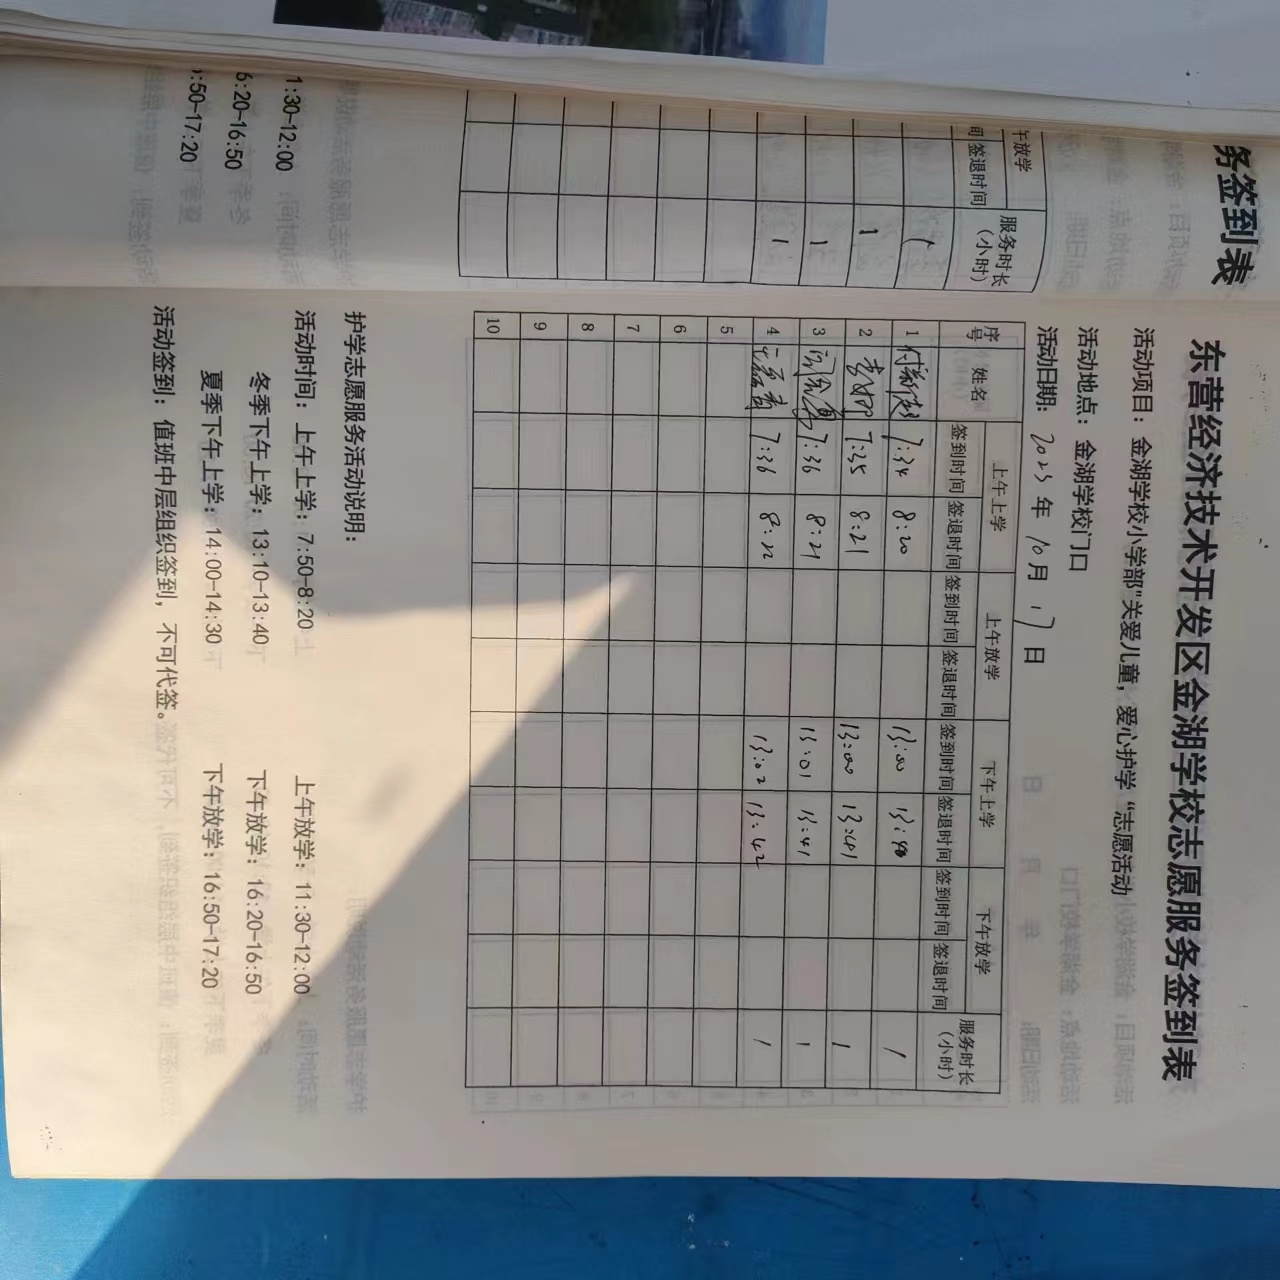 务签到表
午放学
服务时长
(小时)
签退时间
1
1
1
1
1:30-12:00
6:20-16:50
:50-17:20
东营经济技术开发区金湖学校志愿服务签到表
活动项目：金湖学校小学部"关爱儿童，爱心护学“志愿活动
活动地点：金湖学校门口
活动日期：2025 年 10 月 17 日
序号 姓名 上午上学 上午放学 下午上学 下午放学 服务时长(小时)
签到时间 签退时间 签到时间 签退时间 签到时间 签退时间 签到时间 签退时间
1 7:34 8:20 13:00 13:40 1
2 7:35 8:21 13:00 13:41 1
3 7:36 8:21 13:01 13:41 1
4 7:36 8:22 13:02 13:42 1
5
6
7
8
9
10
护学志愿服务活动说明：
活动时间：上午上学：7:50-8:20 上午放学：11:30-12:00
冬季下午上学：13:10-13:40 下午放学：16:20-16:50
夏季下午上学：14:00-14:30 下午放学：16:50-17:20
活动签到：值班中层组织签到，不可代签。